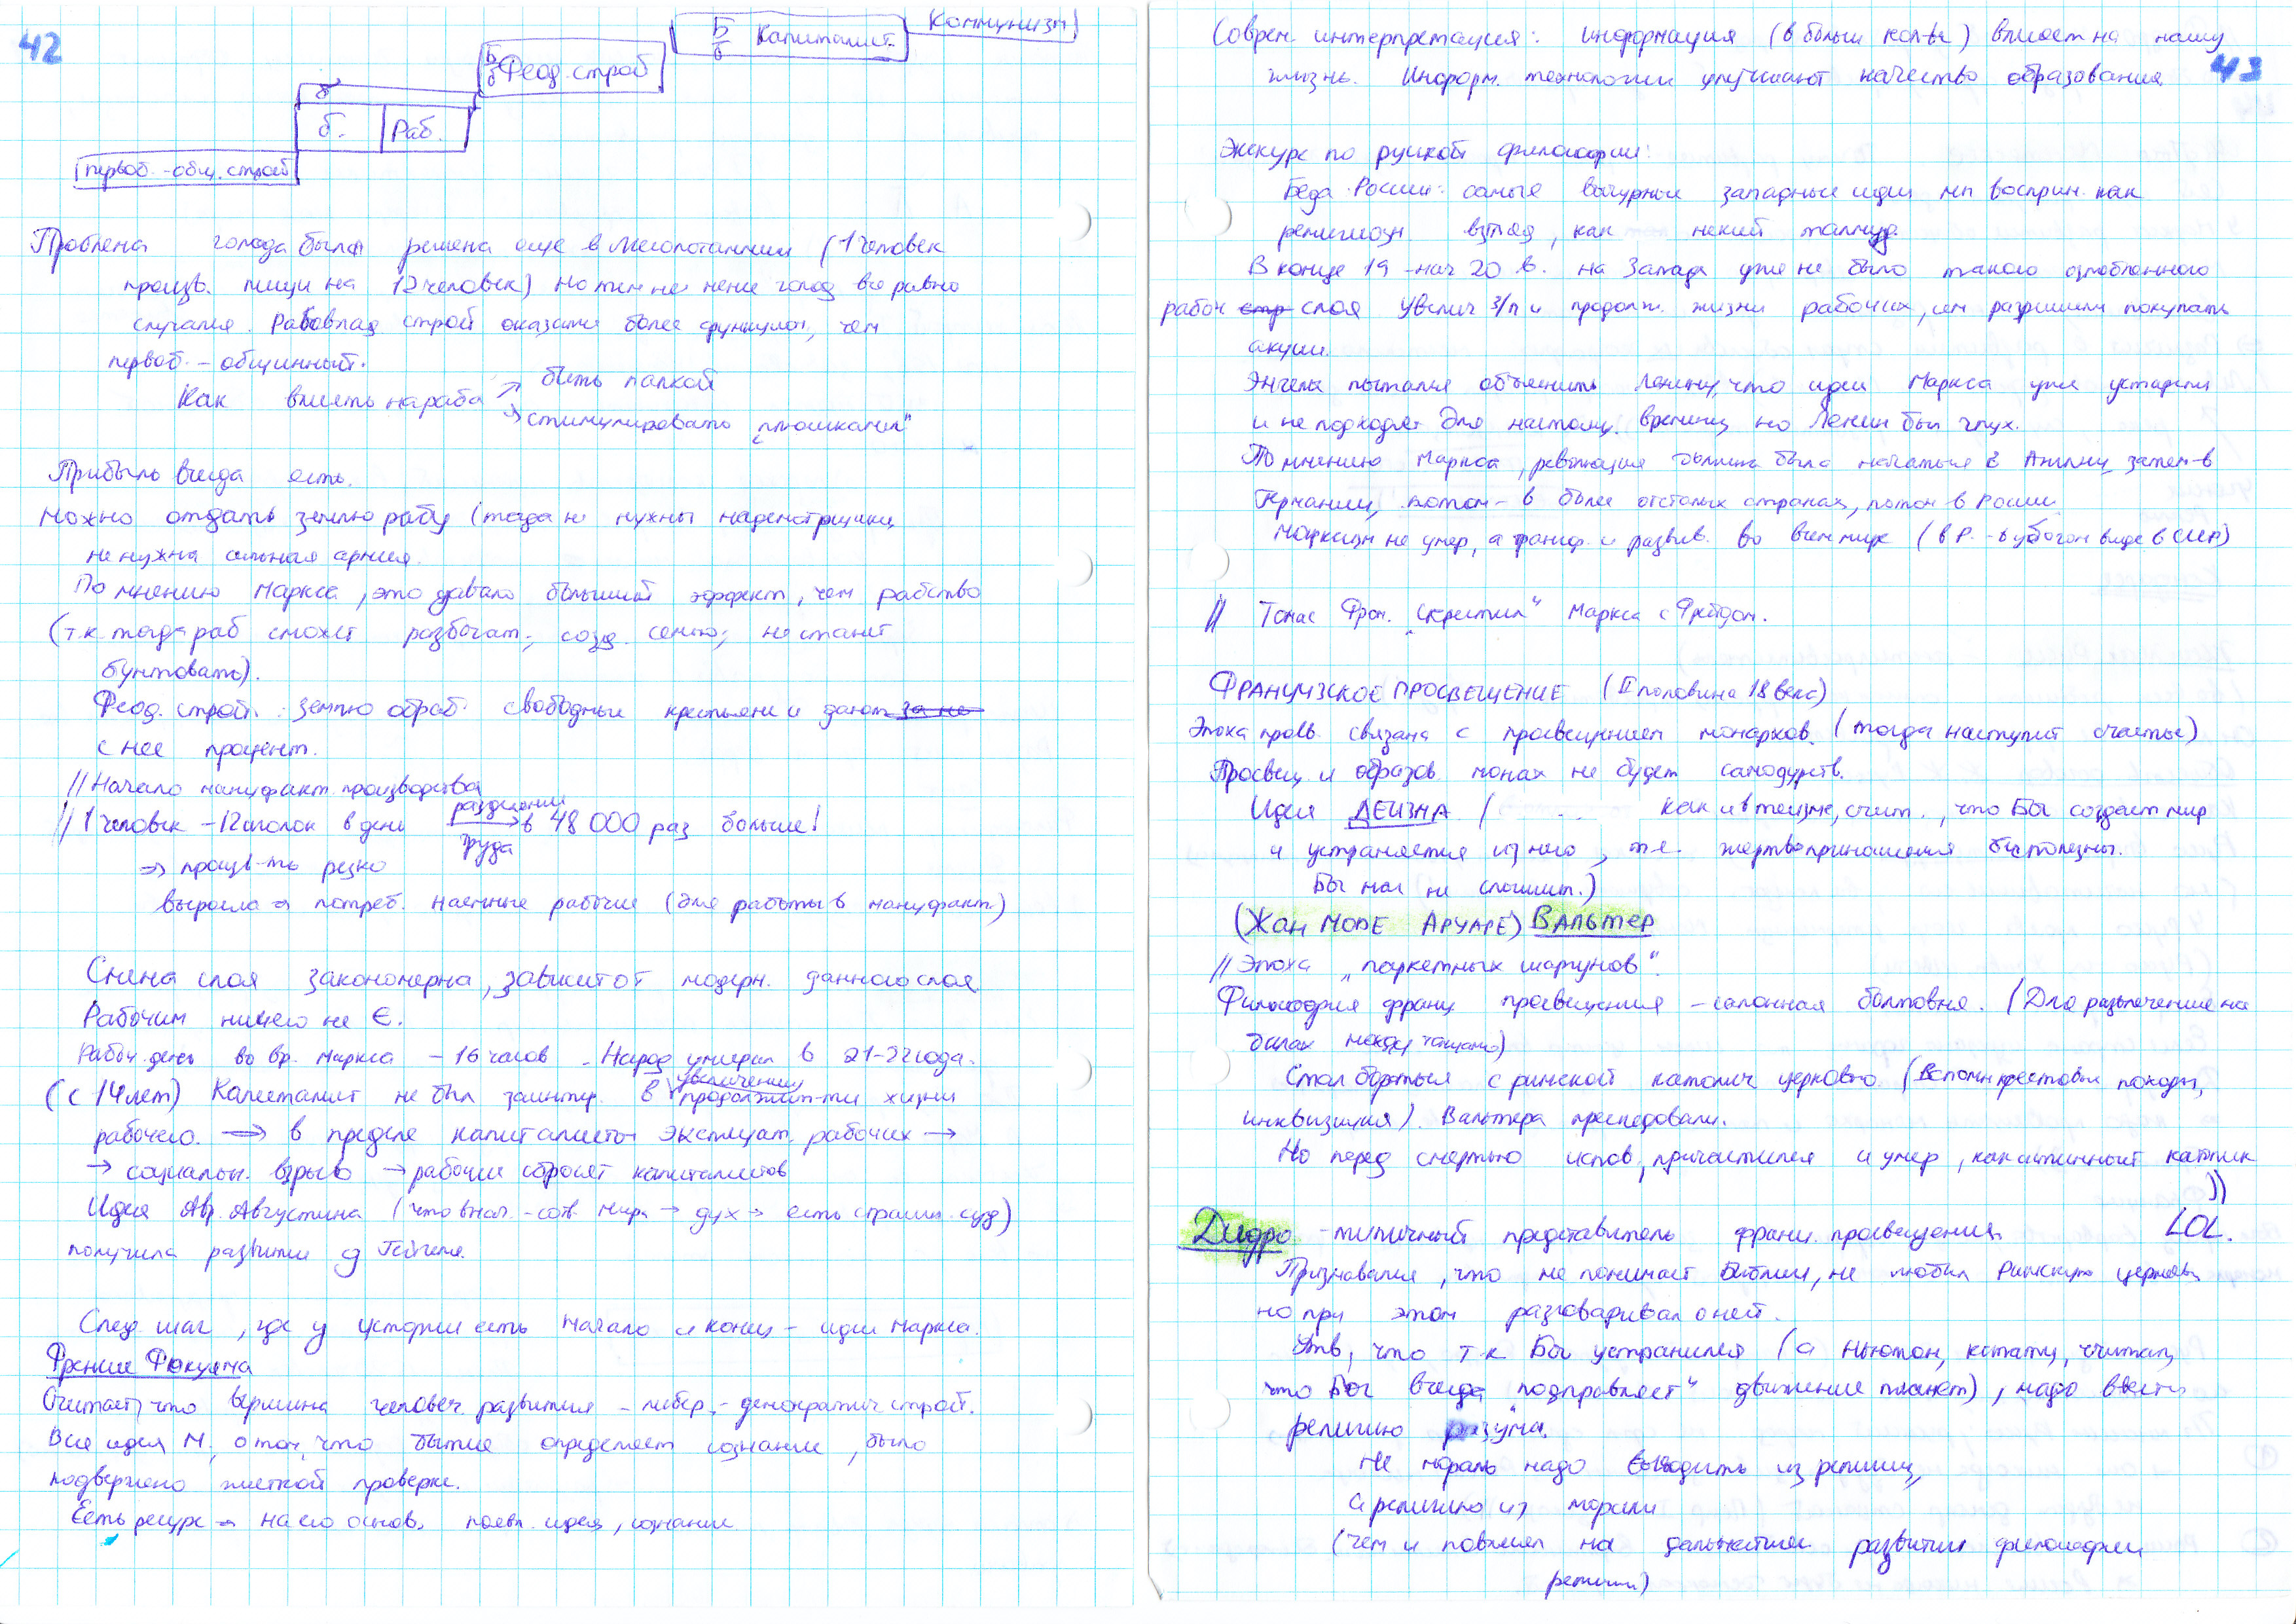 42
Коммунизм
Б
б
Капиталист.
Б
б
Феод. строй
б
б.
Раб.
первоб.-общ. строй
Проблема голода была решена еще в Месопотамии (1 человек
произв. пищи на 12 человек) но тем не мене голод все равно
случался. Рабовлад строй оказался более функцион, чем
первоб.-общинный.
Как влиять на раба
бить палкой
стимулировать „плюшками"
Прибыль всегда есть.
Можно отдать землю рабу (тогда не нужны надсмотрщики,
не нужна сильная армия.
По мнению Маркса, это давало больший эффект, чем рабство
(т.к. тогда раб сможет разбогат., созд. семью, не станет
бунтовать).
Феод. строй: землю обраб. свободные крестьяне и дают
с нее процент.
// Начало мануфакт. производства
// 1 человек - 12 иголок в день
разделение
труда
в 48 000 раз больше!
⇒ произв-ть резко
выросла → потреб. наемные рабочие (для работы в мануфакт.)
Смена слоя закономерна, зависит от модерн. данного слоя.
Рабочим ничего не Є.
Рабоч. день во вр. Маркса - 16 часов. Народ умирал в 21-22 года.
увеличении
(с 14 лет) Капиталист не был заинтер. в продолжит-ти жизни
рабочего. ⇒ в пределе капиталисты эксплуат. рабочих →
→ социальн. взрыв → рабочие сбросят капиталистов
Идея Авр. Августина (что внач. - сотв. мира → дух → есть страшн. суд)
получила развитие у Гегеля.
След. шаг, где у истории есть начало и конец - идеи Маркса.
Френсис Фукуяма
Считает, что вершина человеч. развития - либер.-демократич строй.
Вся идея М. о том, что бытие определяет сознание, было
подвержено жесткой проверке.
Есть ресурс → на его основ. появл. идея, сознание
43
Соврем. интерпретация: информация (в больш кол-ве) влияет на нашу
жизнь. Информ. технологии улучшают качество образования.
Экскурс по русской философии:
Беда России: самые вычурные западные идеи мы восприн. как
религиозн. взгляд, как некий талмуд.
В конце 19 - нач 20 в. на Западе уже не было такого озлобленного
рабоч стр слоя Увелич з/п и продолж. жизни рабочих, им разрешили покупать
акции.
Энгельс пытался объяснить Ленину, что идеи Маркса уже устарели
и не подходят для настоящ. времени, но Ленин был глух.
По мнению Маркса, революция должна была начаться в Англии, затем - в
Германии, потом - в более отсталых странах, потом - в России
Марксизм не умер, а трансф. и развив. во всем мире (в Р. - в убогом виде в СССР)
// Томас Фром. „скрестил" Маркса с Фрейдом.
ФРАНЦУЗСКОЕ ПРОСВЕЩЕНИЕ (II половина 18 века)
Эпоха просв. связана с просвещением монархов. (тогда наступит счастье)
Просвещ. и образов. монах не будет самодурств.
Идеи ДЕИЗМА ( как и в теизме, счит., что Бог создает мир
и устраняется из него, т.е. жертвоприношения бесполезны.
Бог нас не слышит.)
(Жан Моде Аруаре) Вальтер
// Эпоха „паркетных шаркунов".
Философия франц. просвещения - салонная болтовня. (Для развлечение на
балах между танцами)
Стал бороться с римской католич церковью. (Вспомн крестовые походы,
инквизиция). Вальтера преследовали.
Но перед смертью испов., причастился и умер, как истинный католик
))
LOL.
Дидро - типичный представитель франц. просвещения.
Признавался, что не понимает Библии, не любил Римскую церковь
но при этом разговаривал о ней.
Утв, что т.к. Бог устранился (а Ньютон, кстати, считал,
что Бог всегда „подправляет" движение планет), надо ввести
религию разума.
Не мораль надо выводить из религии,
а религию из морали
(чем и повлиял на дальнейшее развитие философии
религии)